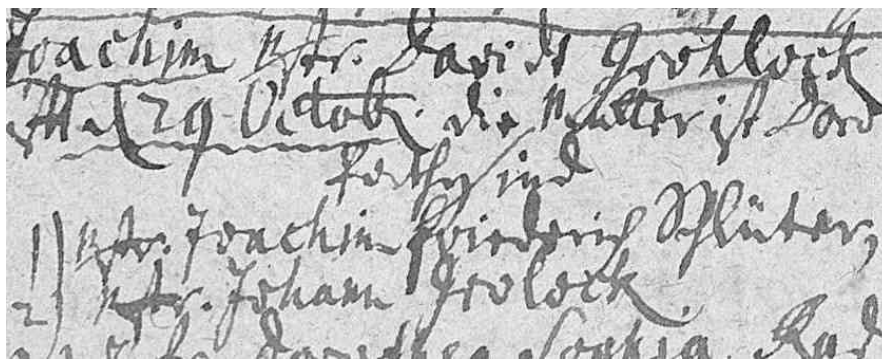 Joachim Mstr. Davidt Grohlock
d 29 Octob. die Mutter ist Doro
sind
1) Mstr. Joachim Friederich Schlüter,
2) Mstr. Johann Grolock
Dorothea Sophia